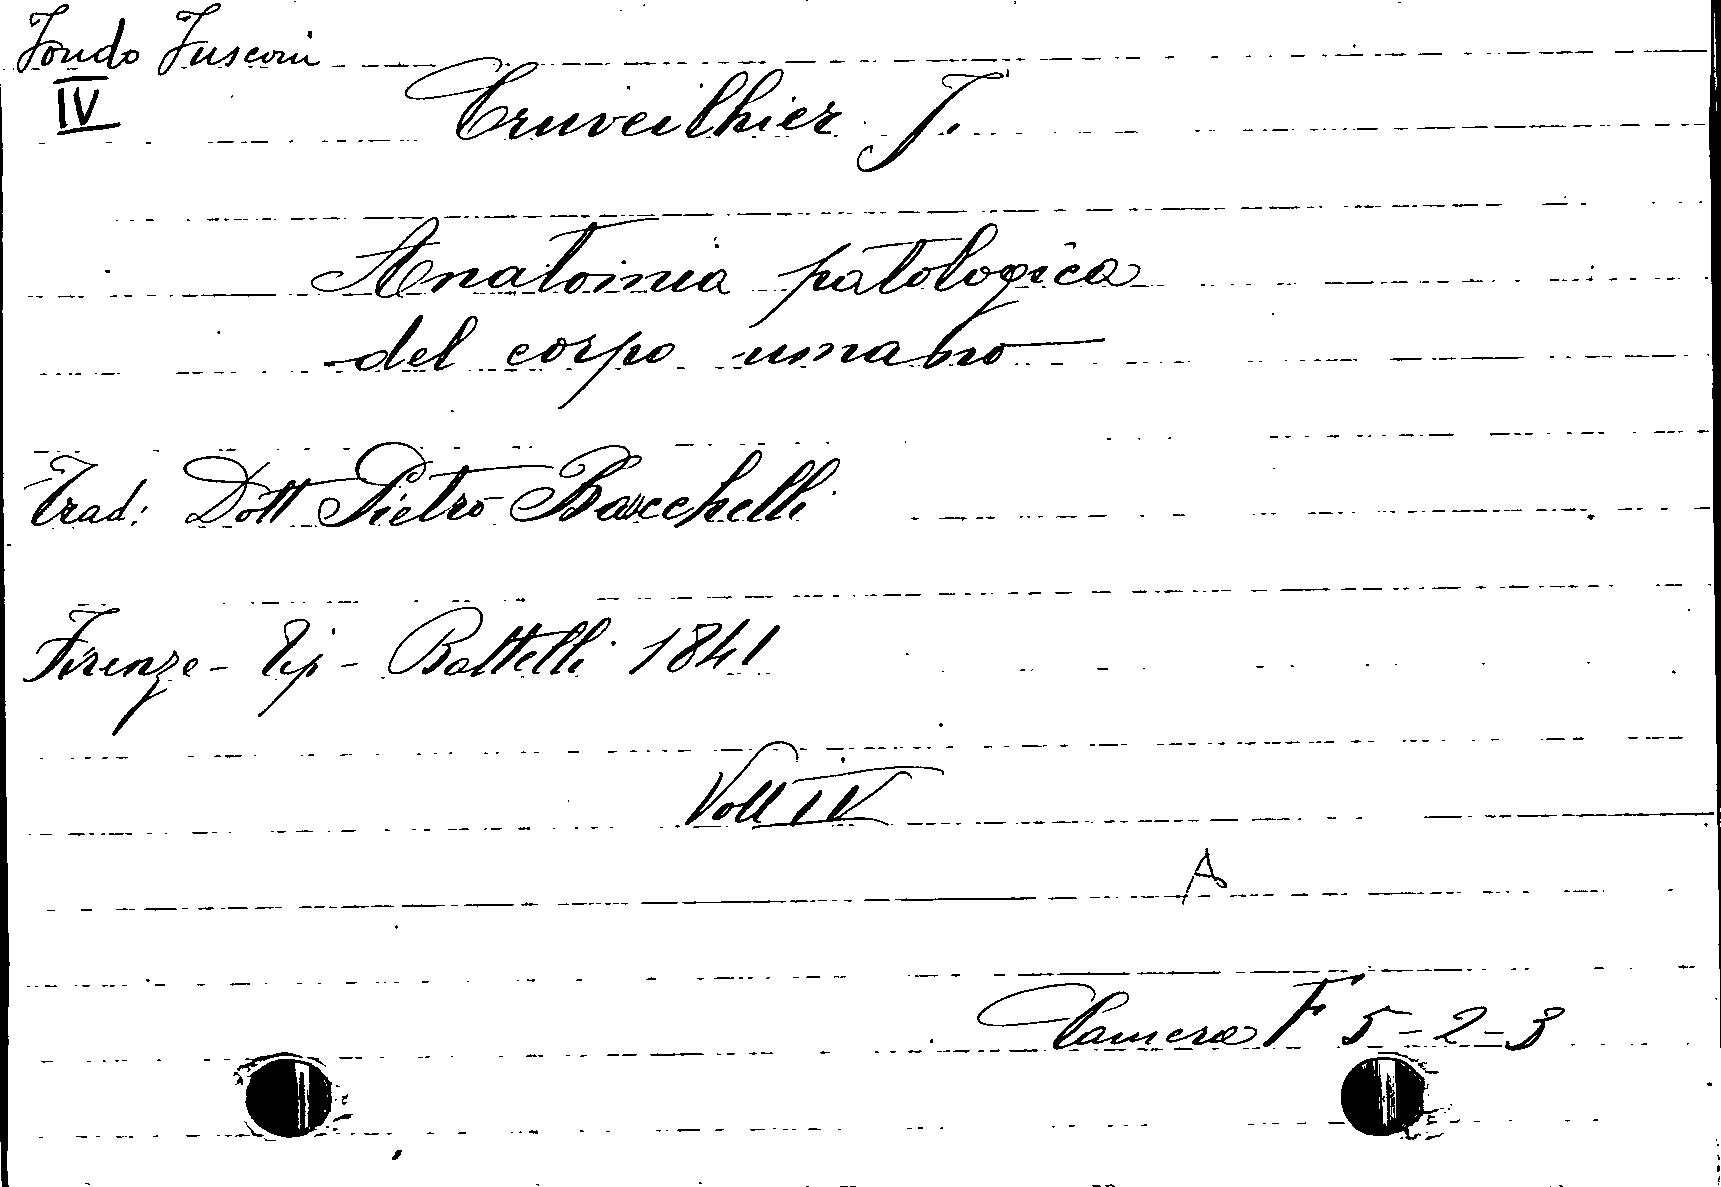 Fondo Fusconi
IV
Cruveilhier J.
Anatomia patologica
del corpo umano
Trad: Dott Pietro Bacchelli
Firenze - Tip - Battelli 1841
Voll IV
A
Camera F 5-2-3